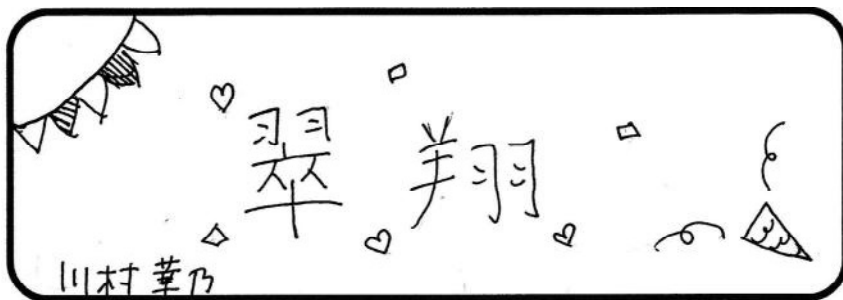 翠翔
川村華乃